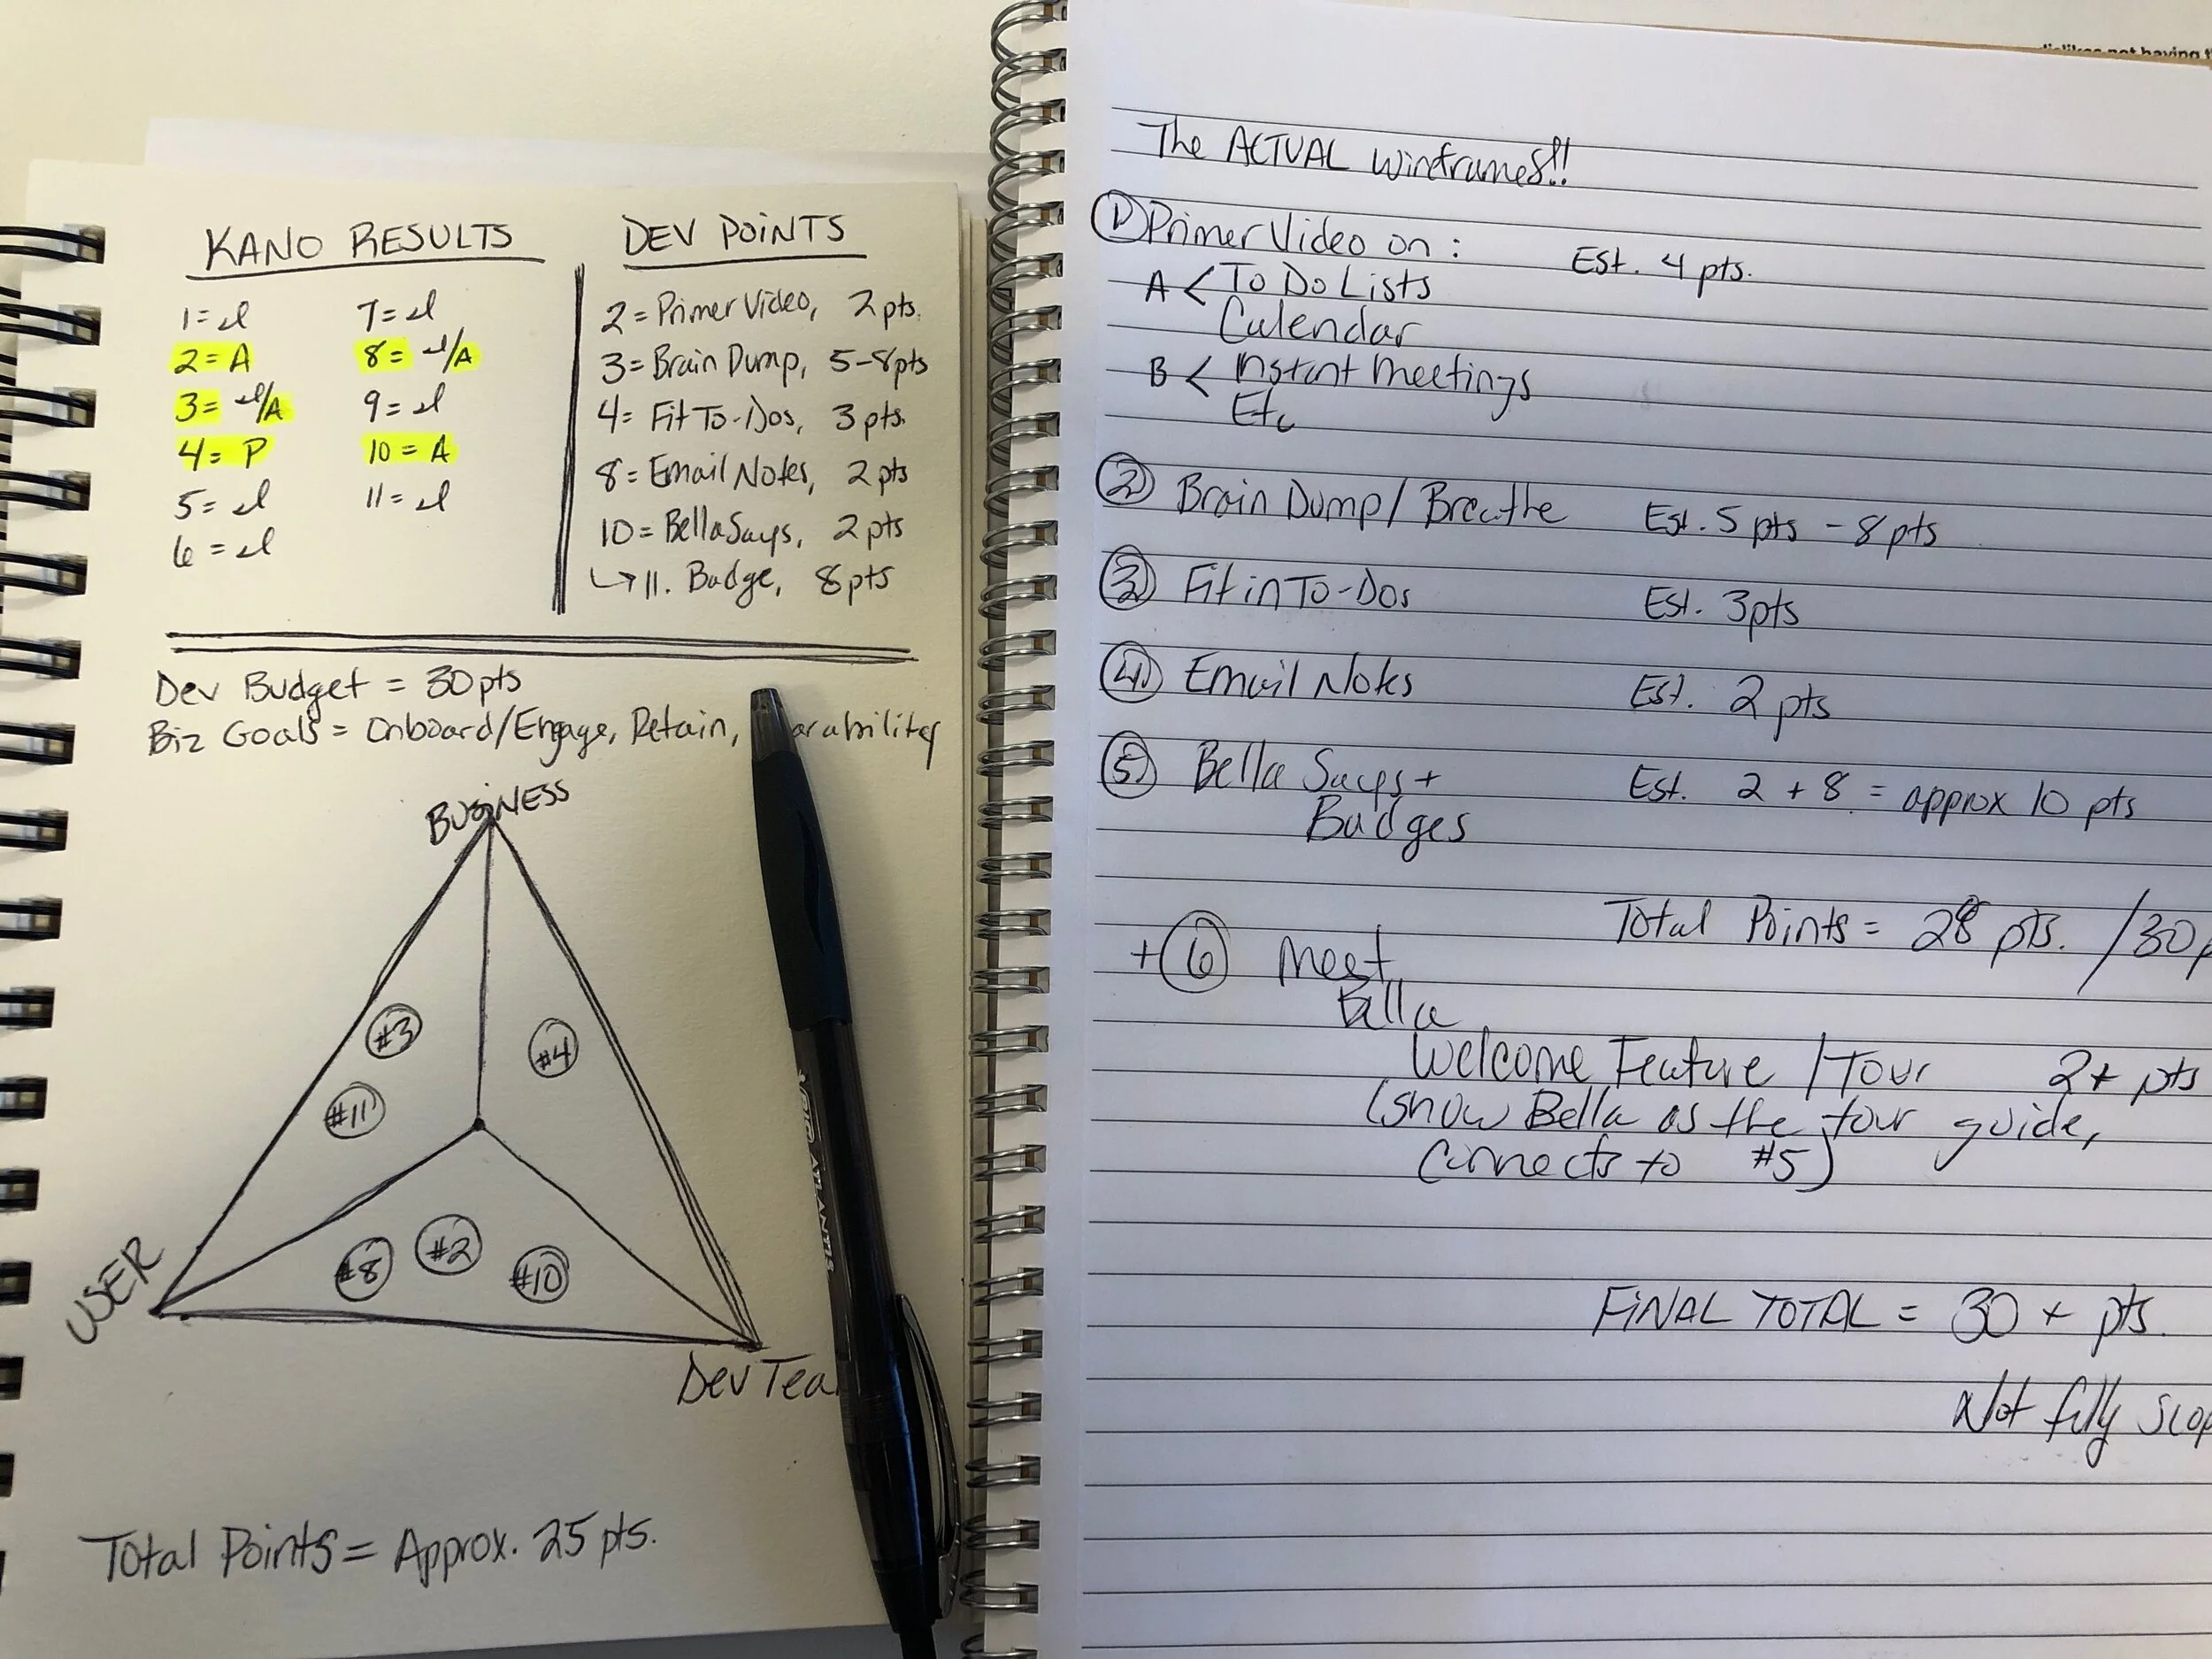 KANO RESULTS
1 = I
2 = A
3 = I/A
4 = P
5 = I
6 = I
7 = I
8 = I/A
9 = I
10 = A
11 = I
DEV POINTS
2 = Primer Video, 2 pts.
3 = Brain Dump, 5-8pts
4 = Fit To-Dos, 3 pts.
8 = Email Notes, 2 pts
10 = Bella Says, 2 pts
↳ 11. Badge, 8 pts
Dev Budget = 30 pts
Biz Goals = Onboard/Engage, Retain,
BUSINESS
#3
#4
#11
#8
#2
#10
USER
Dev Tea
Total Points = Approx. 25 pts.
The ACTUAL Wireframes!!
① Primer Video on : Est. 4 pts.
A < To Do Lists
Calendar
B < Instant Meetings
Etc
② Brain Dump / Breathe Est. 5 pts - 8 pts
③ Fit in To-Dos Est. 3 pts
④ Email Notes Est. 2 pts
⑤ Bella Says + Est. 2 + 8 = approx 10 pts
Badges
Total Points = 28 pts. /30p
+ ⑥ Meet
Bella
Welcome Feature / Tour 2+ pts
(show Bella as the tour guide,
Connects to #5)
FINAL TOTAL = 30 + pts.
Not fully scop
VELOCITY ATLANTIS
dislikes not having